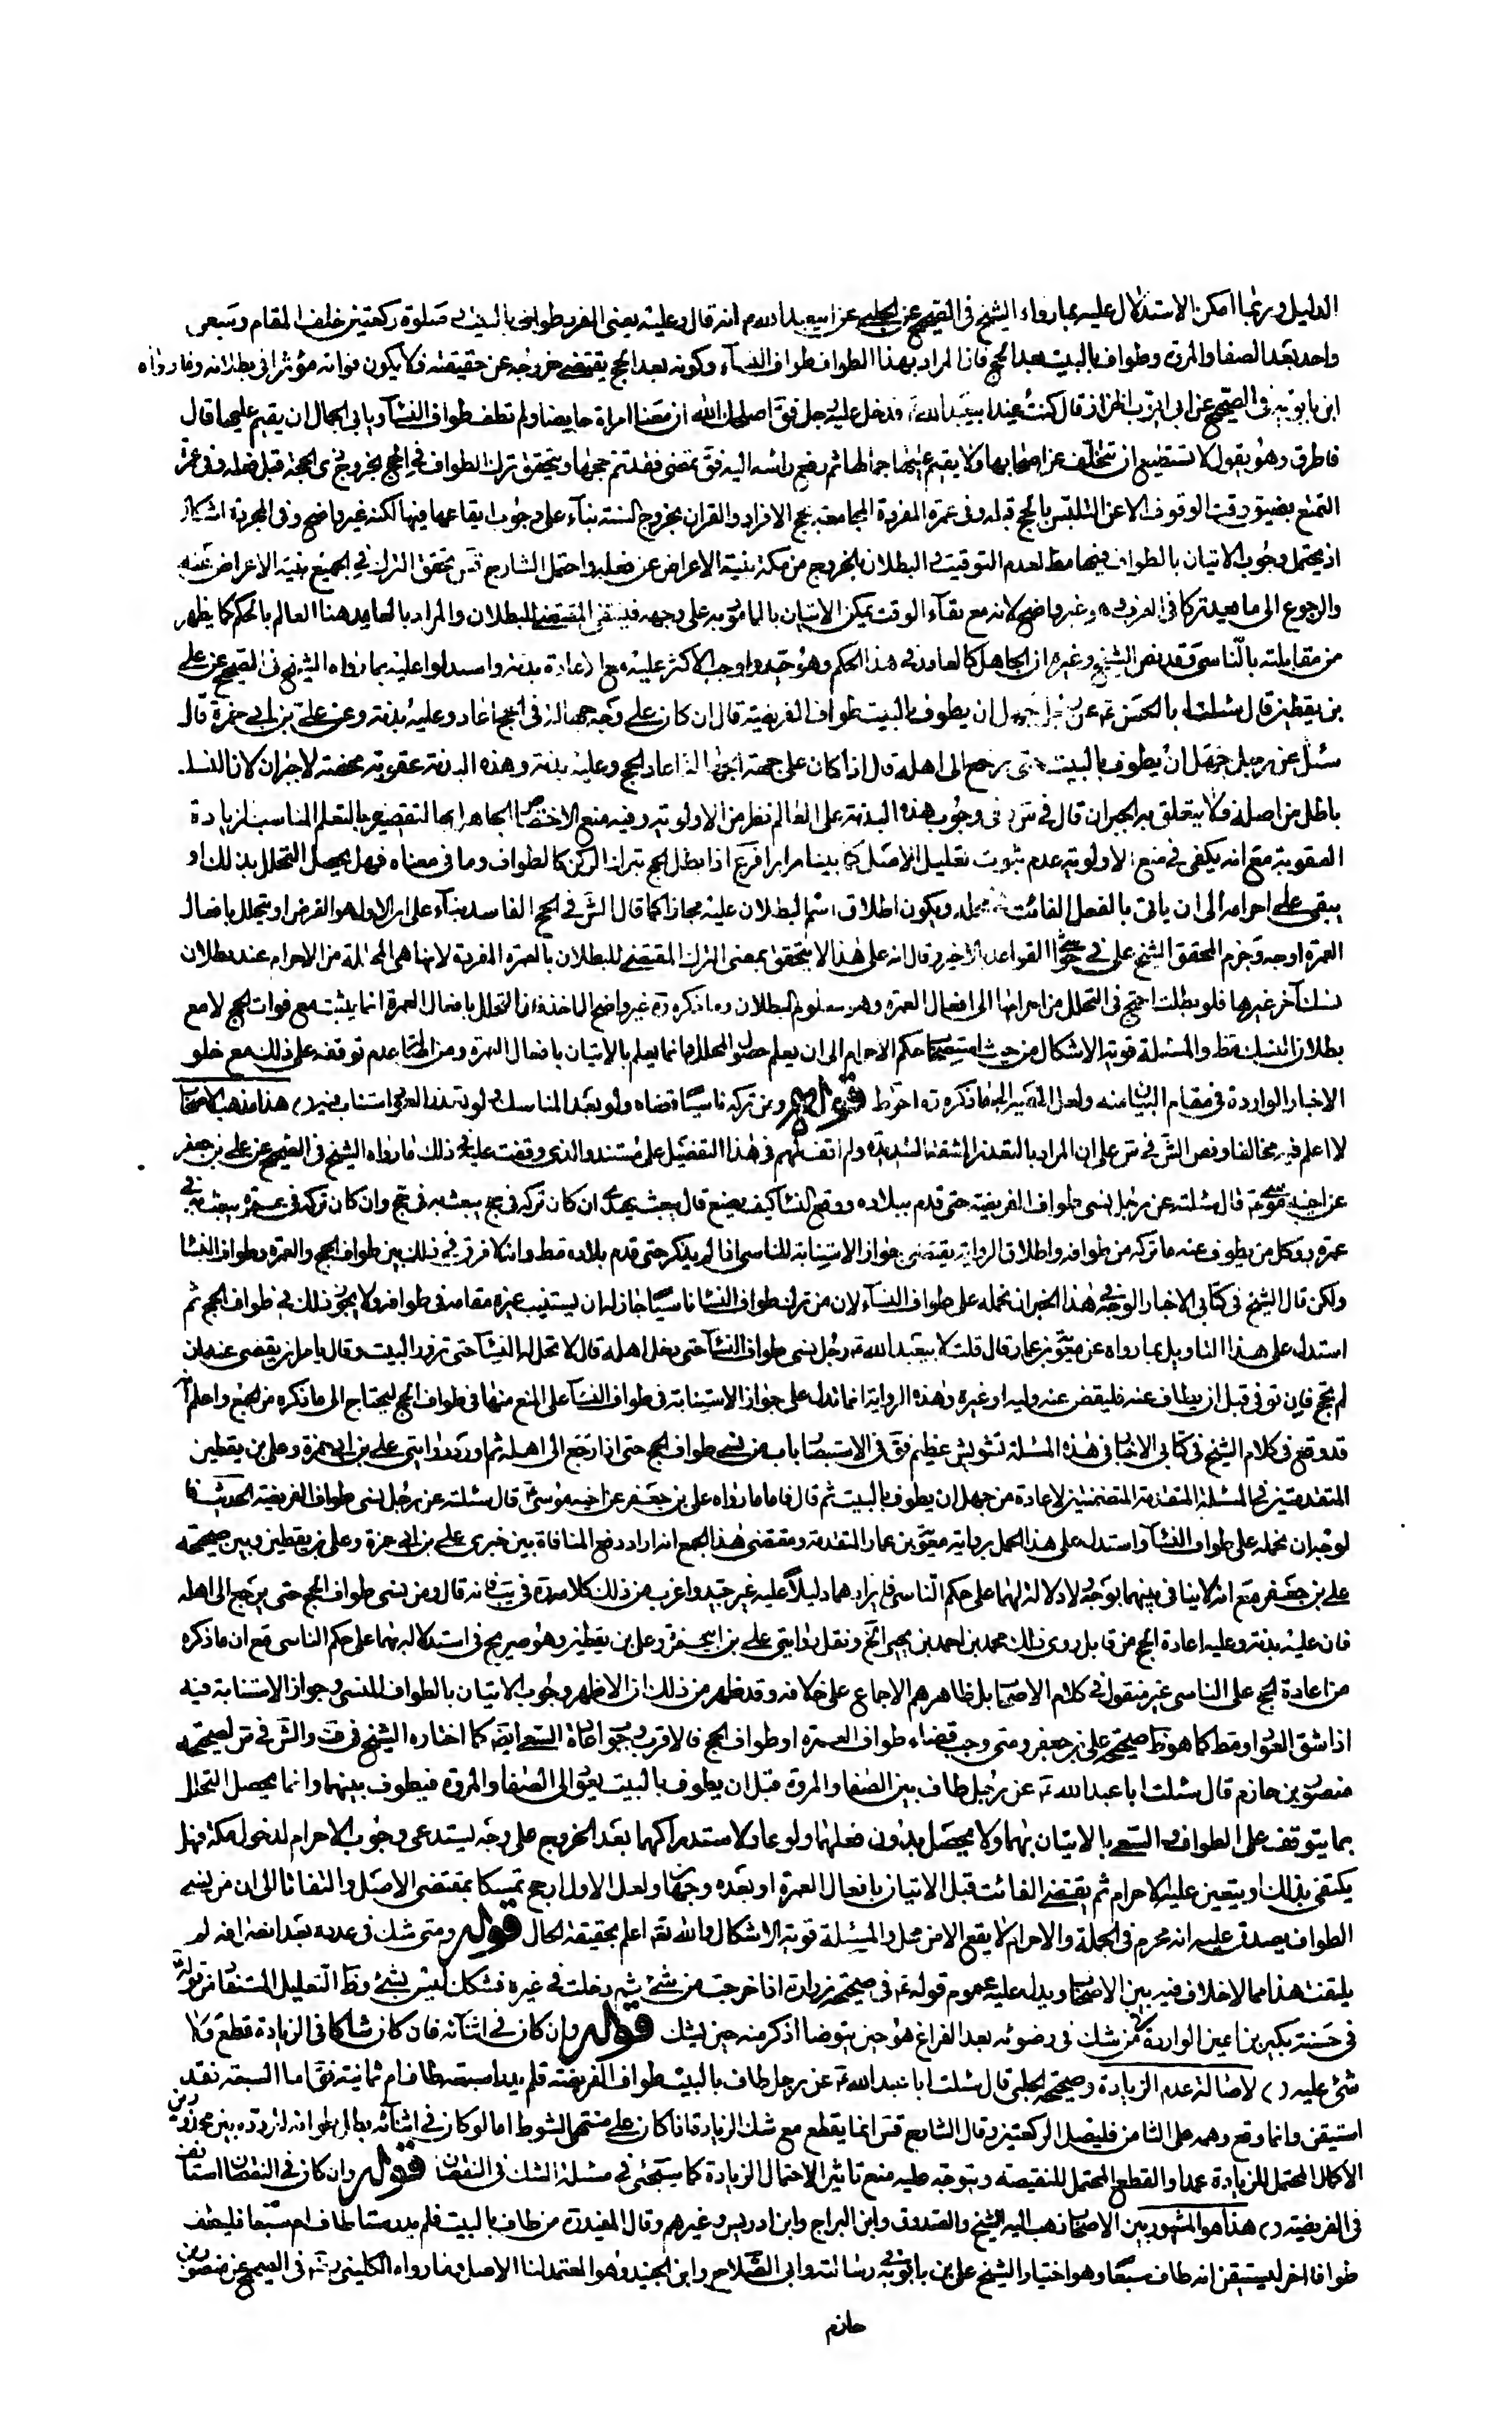 الدليل وربما امكن الاستدلال عليه بمارواه الشيخ في الصحيح عن الحلبي عن ابيعبدالله ع انه قال وعليه يعني المفرد طواف بالبيت وصلوة ركعتين خلف المقام وسعي
واحد بعد الصفا والمروة وطواف بالبيت بعد الحج فان المراد بهذا الطواف طواف النساء وكونه بعد الحج يقتضي خروجه عن حقيقته فلا يكون فواته مؤثرا في بطلانه وما رواه
ابن بابويه في الصحيح عن ابي ايوب الخزاز قال كنت عند ابيعبدالله ع فدخل عليه رجل فق اصلحك الله ان معنا امراة حايضا ولم تطف طواف النسآء ويابى الجمال ان يقيم عليها قال
فاطرق وهو يقول لا تستطيع ان تتخلف عن اصحابها ولا يقيم عليها جمالها ثم رفع راسه اليه فق تمضي فقد تم حجها ويتحقق ترك الطواف في الحج بخروج ذي الحجة قبل فعله وفي عمرة
التمتع بضيق وقت الوقوف الا عن التلبس بالحج قبله وفي عمرة المفردة المجامعة لحج الافراد والقران بخروج السنة بنآء على وجوب ايقاعها فيها لكنه غير واضح وفي المجردة اشكال
اذ يحتمل وجوب الاتيان بالطواف فيها مط لعدم التوقيت والبطلان بالخروج من مكة بنية الاعراض عن فعله واحتمل الشارح قس تحقق الترك في الجميع بنية الاعراض عنه
والرجوع الى ما يعد تركا في العرف وهو غير واضح لانه مع بقآء الوقت يمكن الاتيان بالمامور به على وجهه فينتفي المقتضي للبطلان والمراد بالعامد هنا العالم بالحكم كما يظهر
من مقابلته بالناسي وقد نص الشيخ وغيره ان الجاهل كالعامد في هذا الحكم وهو جيد واوجب الاكثر عليه مع الاعادة بدنة واستدلوا عليه بما رواه الشيخ في الصحيح عن علي
بن يقطين قال سئلت ابا الحسن ع عن رجل جهل ان يطوف بالبيت طواف الفريضة قال ان كان على وجه جهالة في الحج اعاد وعليه بدنة وعن علي بن ابي حمزة قال
سئل عن رجل جهل ان يطوف بالبيت حتى يرجع الى اهله قال اذا كان على جهة الجهالة اعاد الحج وعليه بدنة وهذه البدنة عقوبة محضة لا جبران لان النسك
باطل من اصله فلا يتعلق به الجبران قال في س وفي وجوب هذه البدنة على العالم نظر من الاولوية وفيه منع لاختصاص الجاهل بالتقصير بالتعلم المناسب لزيادة
العقوبة مع انه يكفي في منع الاولوية عدم ثبوت تعليل الاصل كما بينا مرارا فرع اذا بطل الحج بترك الركن كالطواف وما في معناه فهل يحصل التحلل بذلك او
يبقى على احرامه الى ان ياتي بالفعل الفائت في محله ويكون اطلاق اسم البطلان عليه مجازا كما قال الش في الحج الفاسد بنآء على ان الاول هو الفرض او يتحلل بافعال
العمرة اوجه وجزم المحقق الشيخ علي في حواشي القواعد بالاخير وقال انه على هذا لا يتحقق بمعنى الترك المقتضي للبطلان بالعمرة المفردة لانها هي المحللة من الاحرام عند بطلان
نسك آخر غيرها فلو بطلت احتج في التحلل من احرامها الى افعال العمرة وهو معلوم البطلان وما ذكره ره غير واضح الماخذ فان التحلل بافعال العمرة انما يثبت مع فوات الحج لا مع
بطلان النسك مط والمسئلة قوية الاشكال من حيث استصحاب حكم الاحرام الى ان يعلم حصول المحلل وانما يعلم بالاتيان بافعال العمرة ومن اصالة عدم توقفه على ذلك مع خلو
الاخبار الواردة في مقام البيان منه ولعل المصير الى ما ذكره ره احوط قوله ومن تركه ناسيا قضاه ولو بعد المناسك ولو تعذر العود استناب فيه ر) هذا مذهب الاصحاب
لا اعلم فيه مخالفا ونص الش في س على ان المراد بالتعذر المشقة الشديدة ولم اقف لهم في هذا التفصيل على مستند والذي وقفت عليه في ذلك ما رواه الشيخ في الصحيح عن علي بن جعفر
عن اخيه موسى ع قال سئلته عن رجل نسي طواف الفريضة حتى قدم بلاده وواقع النسا كيف يصنع قال يبعث بهدي ان كان تركه في حج يبعث به في حج وان كان تركه في عمرة يبعث به في
عمرة ووكل من يطوف عنه ما تركه من طوافه واطلاق الرواية يقتضي جواز الاستنابة للناسي اذا لم يذكر حتى قدم بلاده مط وانه لا فرق في ذلك بين طواف الحج والعمرة وطواف النسا
ولكن قال الشيخ في كتابي الاخبار الوجه في هذا الخبر ان نحمله على طواف النسآء لان من ترك طواف النسا ناسيا جاز له ان يستنيب غيره مقامه في طوافه ولا يجوز ذلك في طواف الحج ثم
استدل على هذا التاويل بما رواه عن معوية بن عمار قال قلت لابيعبد الله ع رجل نسي طواف النسآ حتى دخل اهله قال لا تحل له النسآ حتى تزور البيت وقال يامر ان يقضى عنه ان
لم يحج فان توفي قبل ان يطاف عنه فليقض عنه وليه او غيره وهذه الرواية انما تدل على جواز الاستنابة في طواف النسآ على المنع منها في طواف الحج ليحتاج الى ما ذكره من الجمع واعلم انه
قد وقع في كلام الشيخ في كتابي الاخبار في هذه المسئلة تشويش عظيم فق في الاستبصار باب من نسي طواف الحج حتى اذا رجع الى اهله ثم اورد روايتي علي بن ابي حمزة وعلي بن يقطين
المتقدمتين في المسئلة المتقدمة المتضمنتين لاعادة من جهل ان يطوف بالبيت ثم قال فاما ما رواه علي بن جعفر عن اخيه موسى ع قال سئلته عن رجل نسي طواف الفريضة الحديث فا
لوجه ان نحمله على طواف النسآ واستدل على هذا الحمل برواية معوية بن عمار المتقدمة ومقتضى هذا الجمع انه اراد دفع المنافاة بين خبري علي بن ابي حمزة وعلي بن يقطين وبين صحيحة
علي بن جعفر مع انه لا ينافي بينهما بوجه لا دلالة لهما على حكم الناسي فايرادهما دليلا عليه غير جيد واغرب من ذلك كلامه ره في يب فانه قال ومن نسي طواف الحج حتى يرجع الى اهله
فان عليه بدنة وعليه اعادة الحج من قابل روى ذلك محمد بن احمد بن يحيى الخ ونقل روايتي علي بن ابيحمزة وعلي بن يقطين وهو صريح في استدلاله بهما على حكم الناسي مع ان ما ذكره
من اعادة الحج على الناسي غير منقول في كلام الاصحاب بل ظاهرهم الاجماع على خلافه وقد ظهر من ذلك ان الاظهر وجوب الاتيان بالطواف المنسي وجواز الاستنابة فيه
اذا شق العود او مط كما هو ظ صحيحة علي بن جعفر ومتى وجب قضاء طواف العمرة او طواف الحج فالاقرب وجوب اعادة السعي ايضا كما اختاره الشيخ في ف والش في س لصحيحة
منصور بن حازم قال سئلت ابا عبدالله ع عن رجل طاف بين الصفا والمروة قبل ان يطوف بالبيت يعود الى الصفا والمروة فيطوف بينهما وانما يحصل التحلل
بما يتوقف على الطواف والسعي بالاتيان بهما ولا يحصل بدون فعلهما ولو عاد لاستدراكهما بعد الخروج على وجه يستدعي وجوب الاحرام لدخول مكة فهل
يكتفى بذلك او يتعين عليه الاحرام ثم يقضي الفائت قبل الاتيان بافعال العمرة او بعده وجهان ولعل الاول ارجح تمسكا بمقتضى الاصل والتفاتا الى ان من نسي
الطواف يصدق عليه انه محرم في الجملة والاحرام لا يقع الا من محل والمسئلة قوية الاشكال والله تعه اعلم بحقيقة الحال قوله ومتى شك في عدده بعد انصرافه لم
يلتفت هذا مما لا خلاف فيه بين الاصحاب ويدل عليه عموم قوله ع في صحيحة زرارة اذا خرجت من شئ ثم دخلت في غيره فشكك ليس بشئ وظ التعليل المستفاد من قوله ع
في حسنة بكير بن اعين الواردة في من شك في وضوئه بعد الفراغ هو حين يتوضا اذكر منه حين يشك قوله وان كان في اثنآئه فان كان شاكا في الزيادة قطع ولا
شئ عليه ر) لاصالة عدم الزيادة وصحيحة الحلبي قال سئلت ابا عبدالله ع عن رجل طاف بالبيت طواف الفريضة فلم يدر اسبعة طاف ام ثمانية فق اما السبعة فقد
استيقن وانما وقع وهمه على الثامن فليصل الركعتين وقال الشارح قس انما يقطع مع شك الزيادة اذا كان على منتهى الشوط اما لو كان في اثنآئه بطل طوافه لتردده بين محذورين
الاكمال المحتمل للزيادة عمدا والقطع المحتمل للنقيصة ويتوجه عليه منع تاثير الاحتمال الزيادة كما سيجئ في مسئلة الشك في النقصان قوله وان كان في النقصان استانف
في الفريضة ر) هذا هو المشهور بين الاصحاب ذهب اليه الشيخ والصدوق وابن البراج وابن ادريس وغيرهم وقال المفيد ره من طاف بالبيت فلم يدر ستا طاف ام سبعا فليطف
طوافا اخر ليستيقن انه طاف سبعا وهو اختيار الشيخ علي بن بابويه في رسالته وابي الصلاح وابن الجنيد وهو المعتمد لنا الاصل وما رواه الكليني ره في الصحيح عن منصور بن
حازم